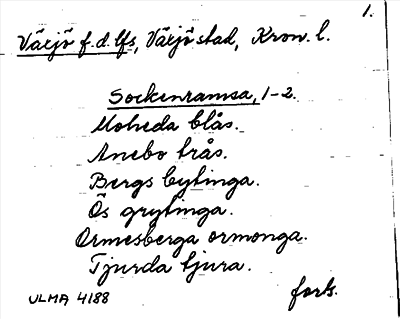 1.
Växjö f.d. lfs, Växjö stad, Kron. l.
Sockenramsa, 1-2.
Moheda blås.
Anebo trås.
Bergs bytinga.
Ös grytinga.
Ormesberga ormonga.
Tjurda tjura.
forts.
ULMA 4188